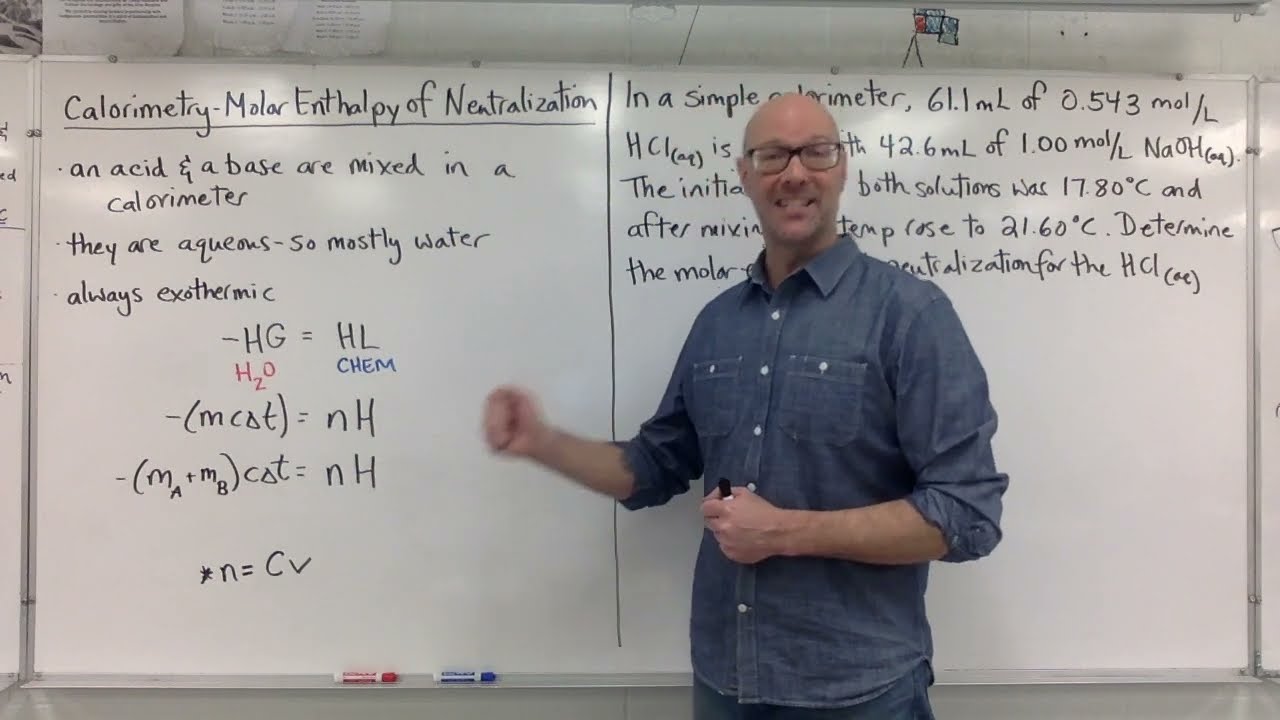 Calorimetry-Molar Enthalpy of Neutralization
· an acid & a base are mixed in a
calorimeter
· they are aqueous - so mostly water
· always exothermic
-HG = HL
H2O CHEM
-(mcΔt) = nH
-(mA+mB)cΔt = nH
*n = Cv
In a simple calorimeter, 61.1 mL of 0.543 mol/L
HCl(aq) is with 42.6mL of 1.00 mol/L NaOH(aq).
The initial both solutions was 17.80°C and
after mixing temp rose to 21.60°C. Determine
the molar neutralization for the HCl(aq)